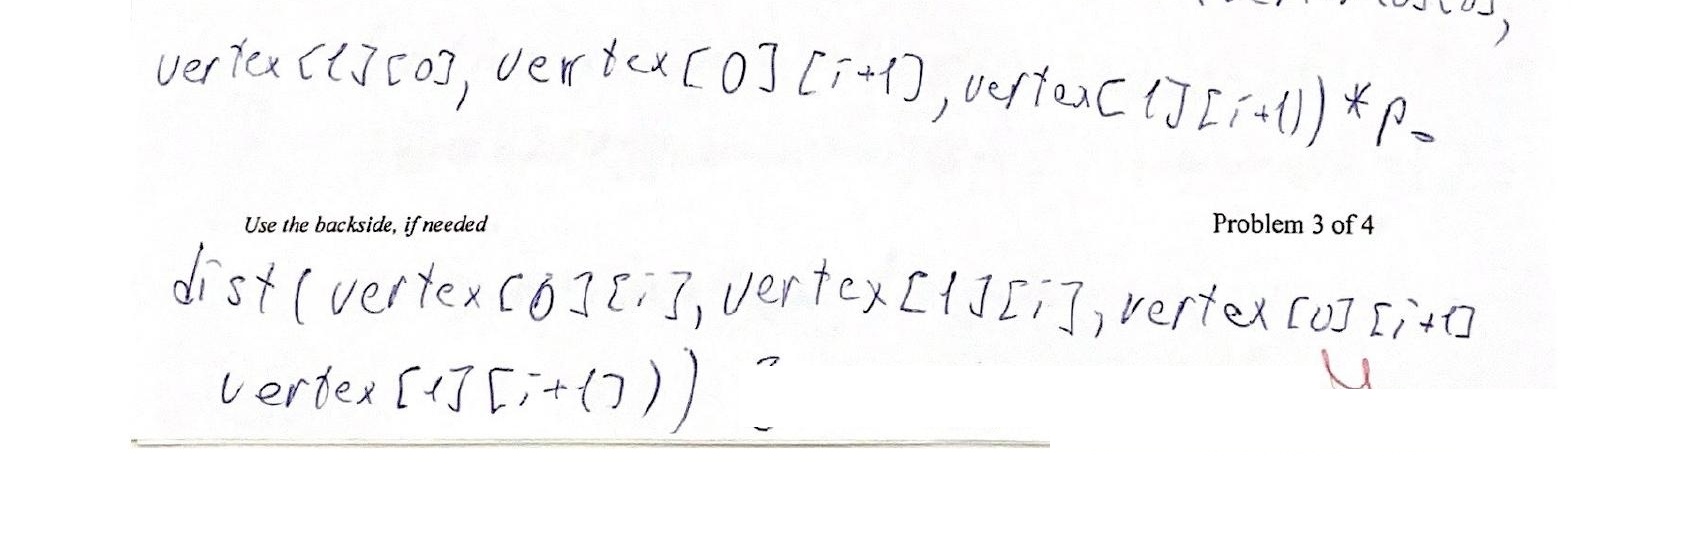 vertex[1][0], vertex[0][i+1], vertex[1][i+1)) * p-
Use the backside, if needed
Problem 3 of 4
dist(vertex[0][i], vertex[1][i], vertex[0][i+1]
vertex[1][i+1]))